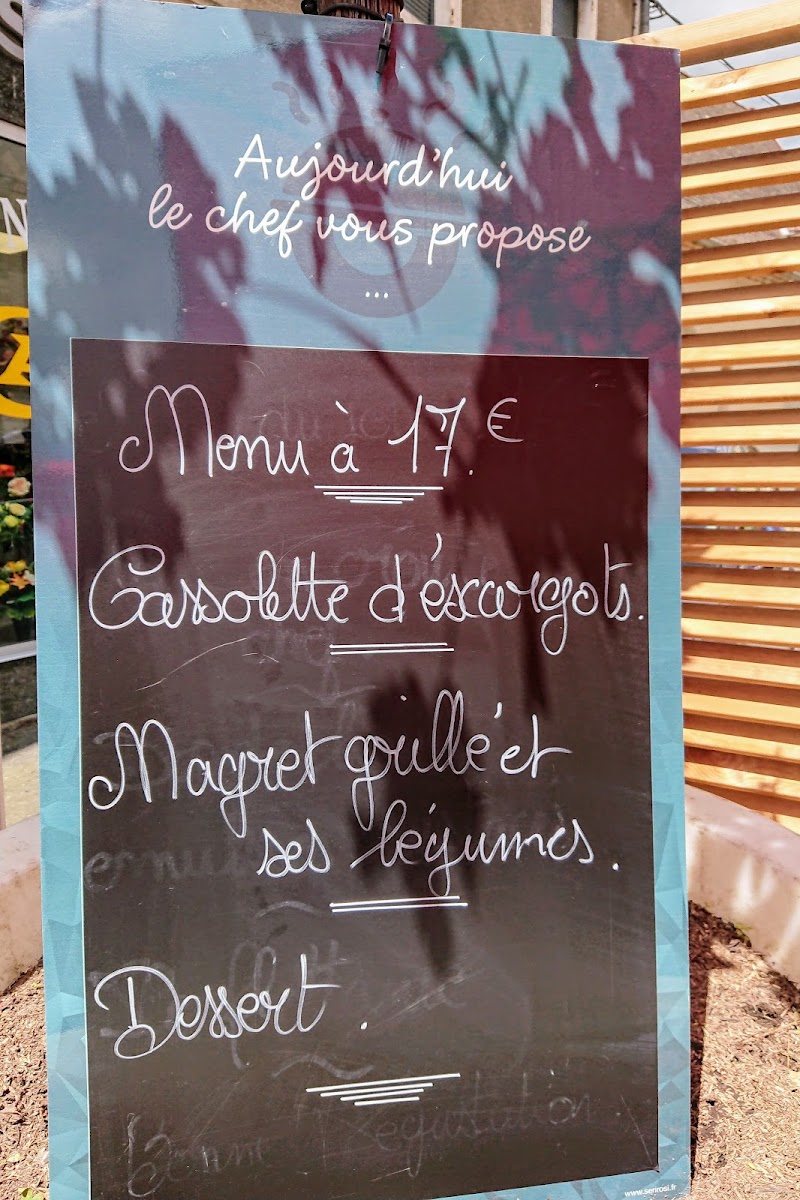 Aujourd'hui
le chef vous propose
...
Menu à 17.€
Cassolette d'éscargots.
Magret grillé et
ses légumes.
Dessert.
www.senrosi.fr